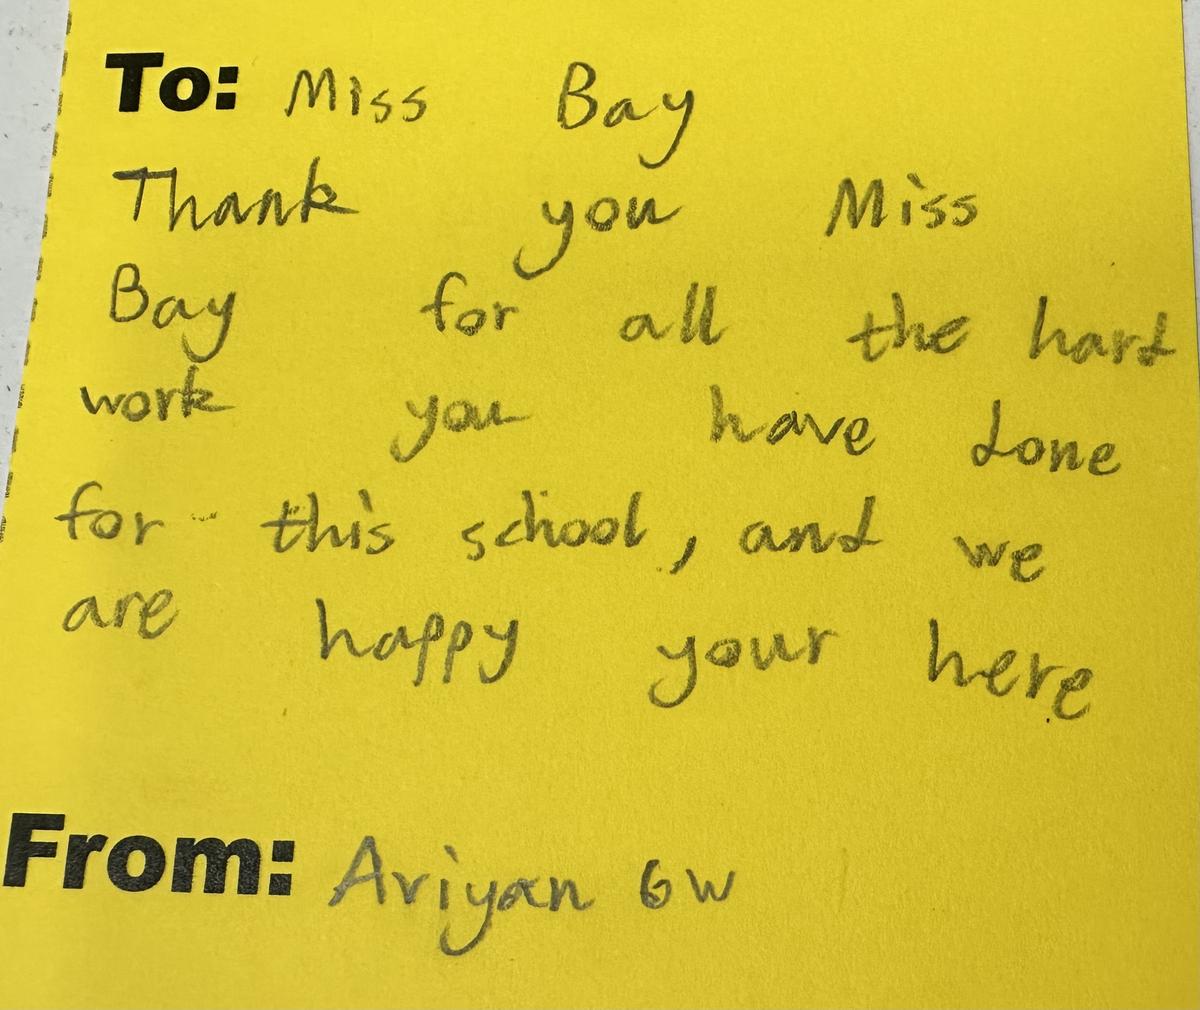 To: Miss Bay
Thank you Miss
Bay for all the hard
work you have done
for this school, and we
are happy your here
From: Ariyan 6W